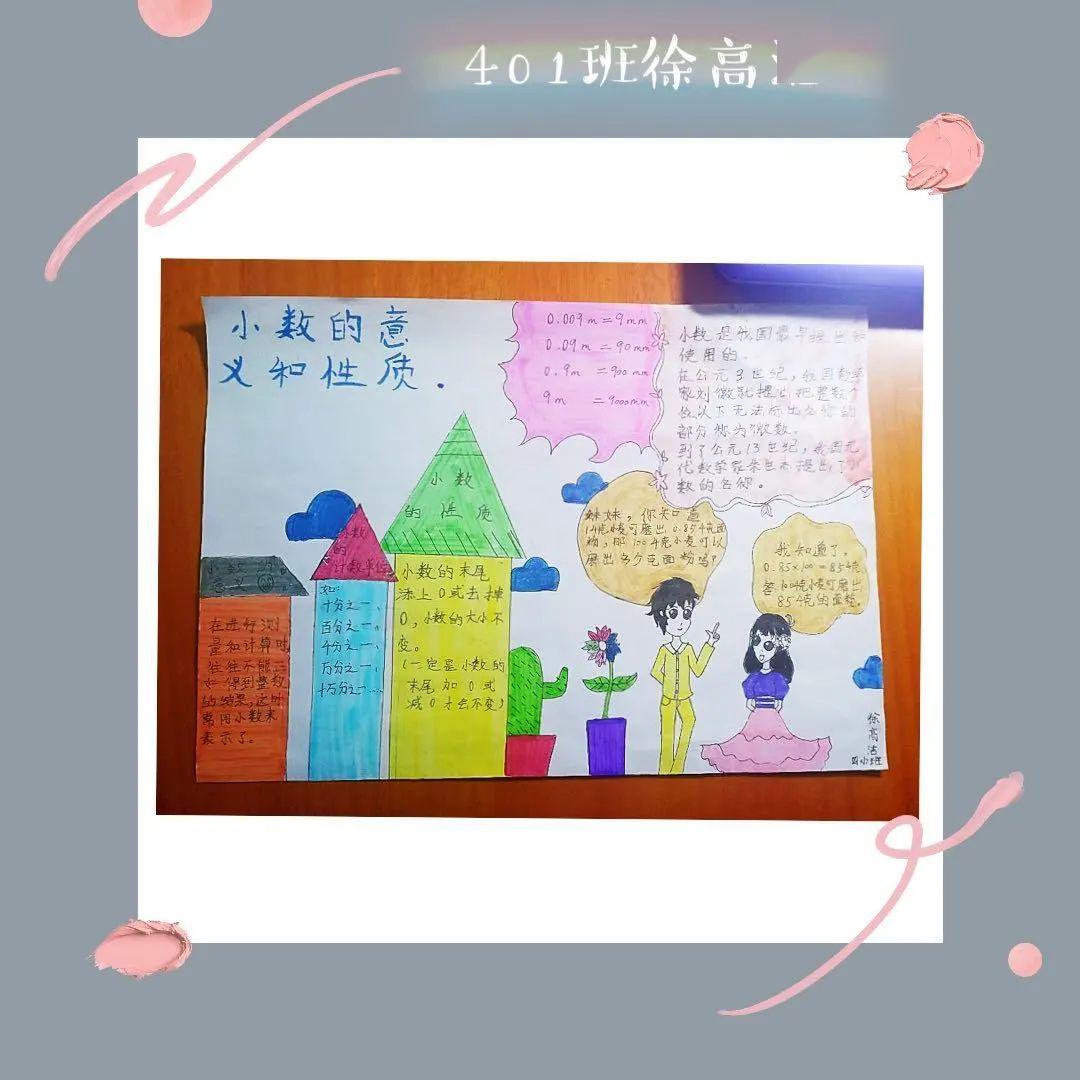 401班徐高
小数的意
义和性质.
0.009m=9mm
0.09m=90mm
0.9m=900mm
9m=9000mm
小数是我国最早提出和
使用的。
在公元3世纪,我国数学
家刘徽就提出把整数个
位以下无法标出名称的
部分称为徽数。
到了公元13世纪,我国元
代数学家朱世杰提出了小
数的名称。
小数
的性质
小数的末尾
添上0或去掉
0,小数的大小不
变。
(一定是小数的
末尾加0或
减0才会不变)
小数
的
计数单位
如:
十分之一、
百分之一、
千分之一、
万分之一、
十万分之一…
小数的
意义
在进行测
量和计算时,
往往不能正
好得到整数
的结果,这时
常用小数来
表示了。
妹妹,你知道
1千克小麦可磨出0.85千克面
粉,那100千克小麦可以
磨出多少千克面粉吗?
我知道了。
0.85×100=85千克
答:100千克小麦可磨出
85千克的面粉。
徐
高
洁
四(1)班